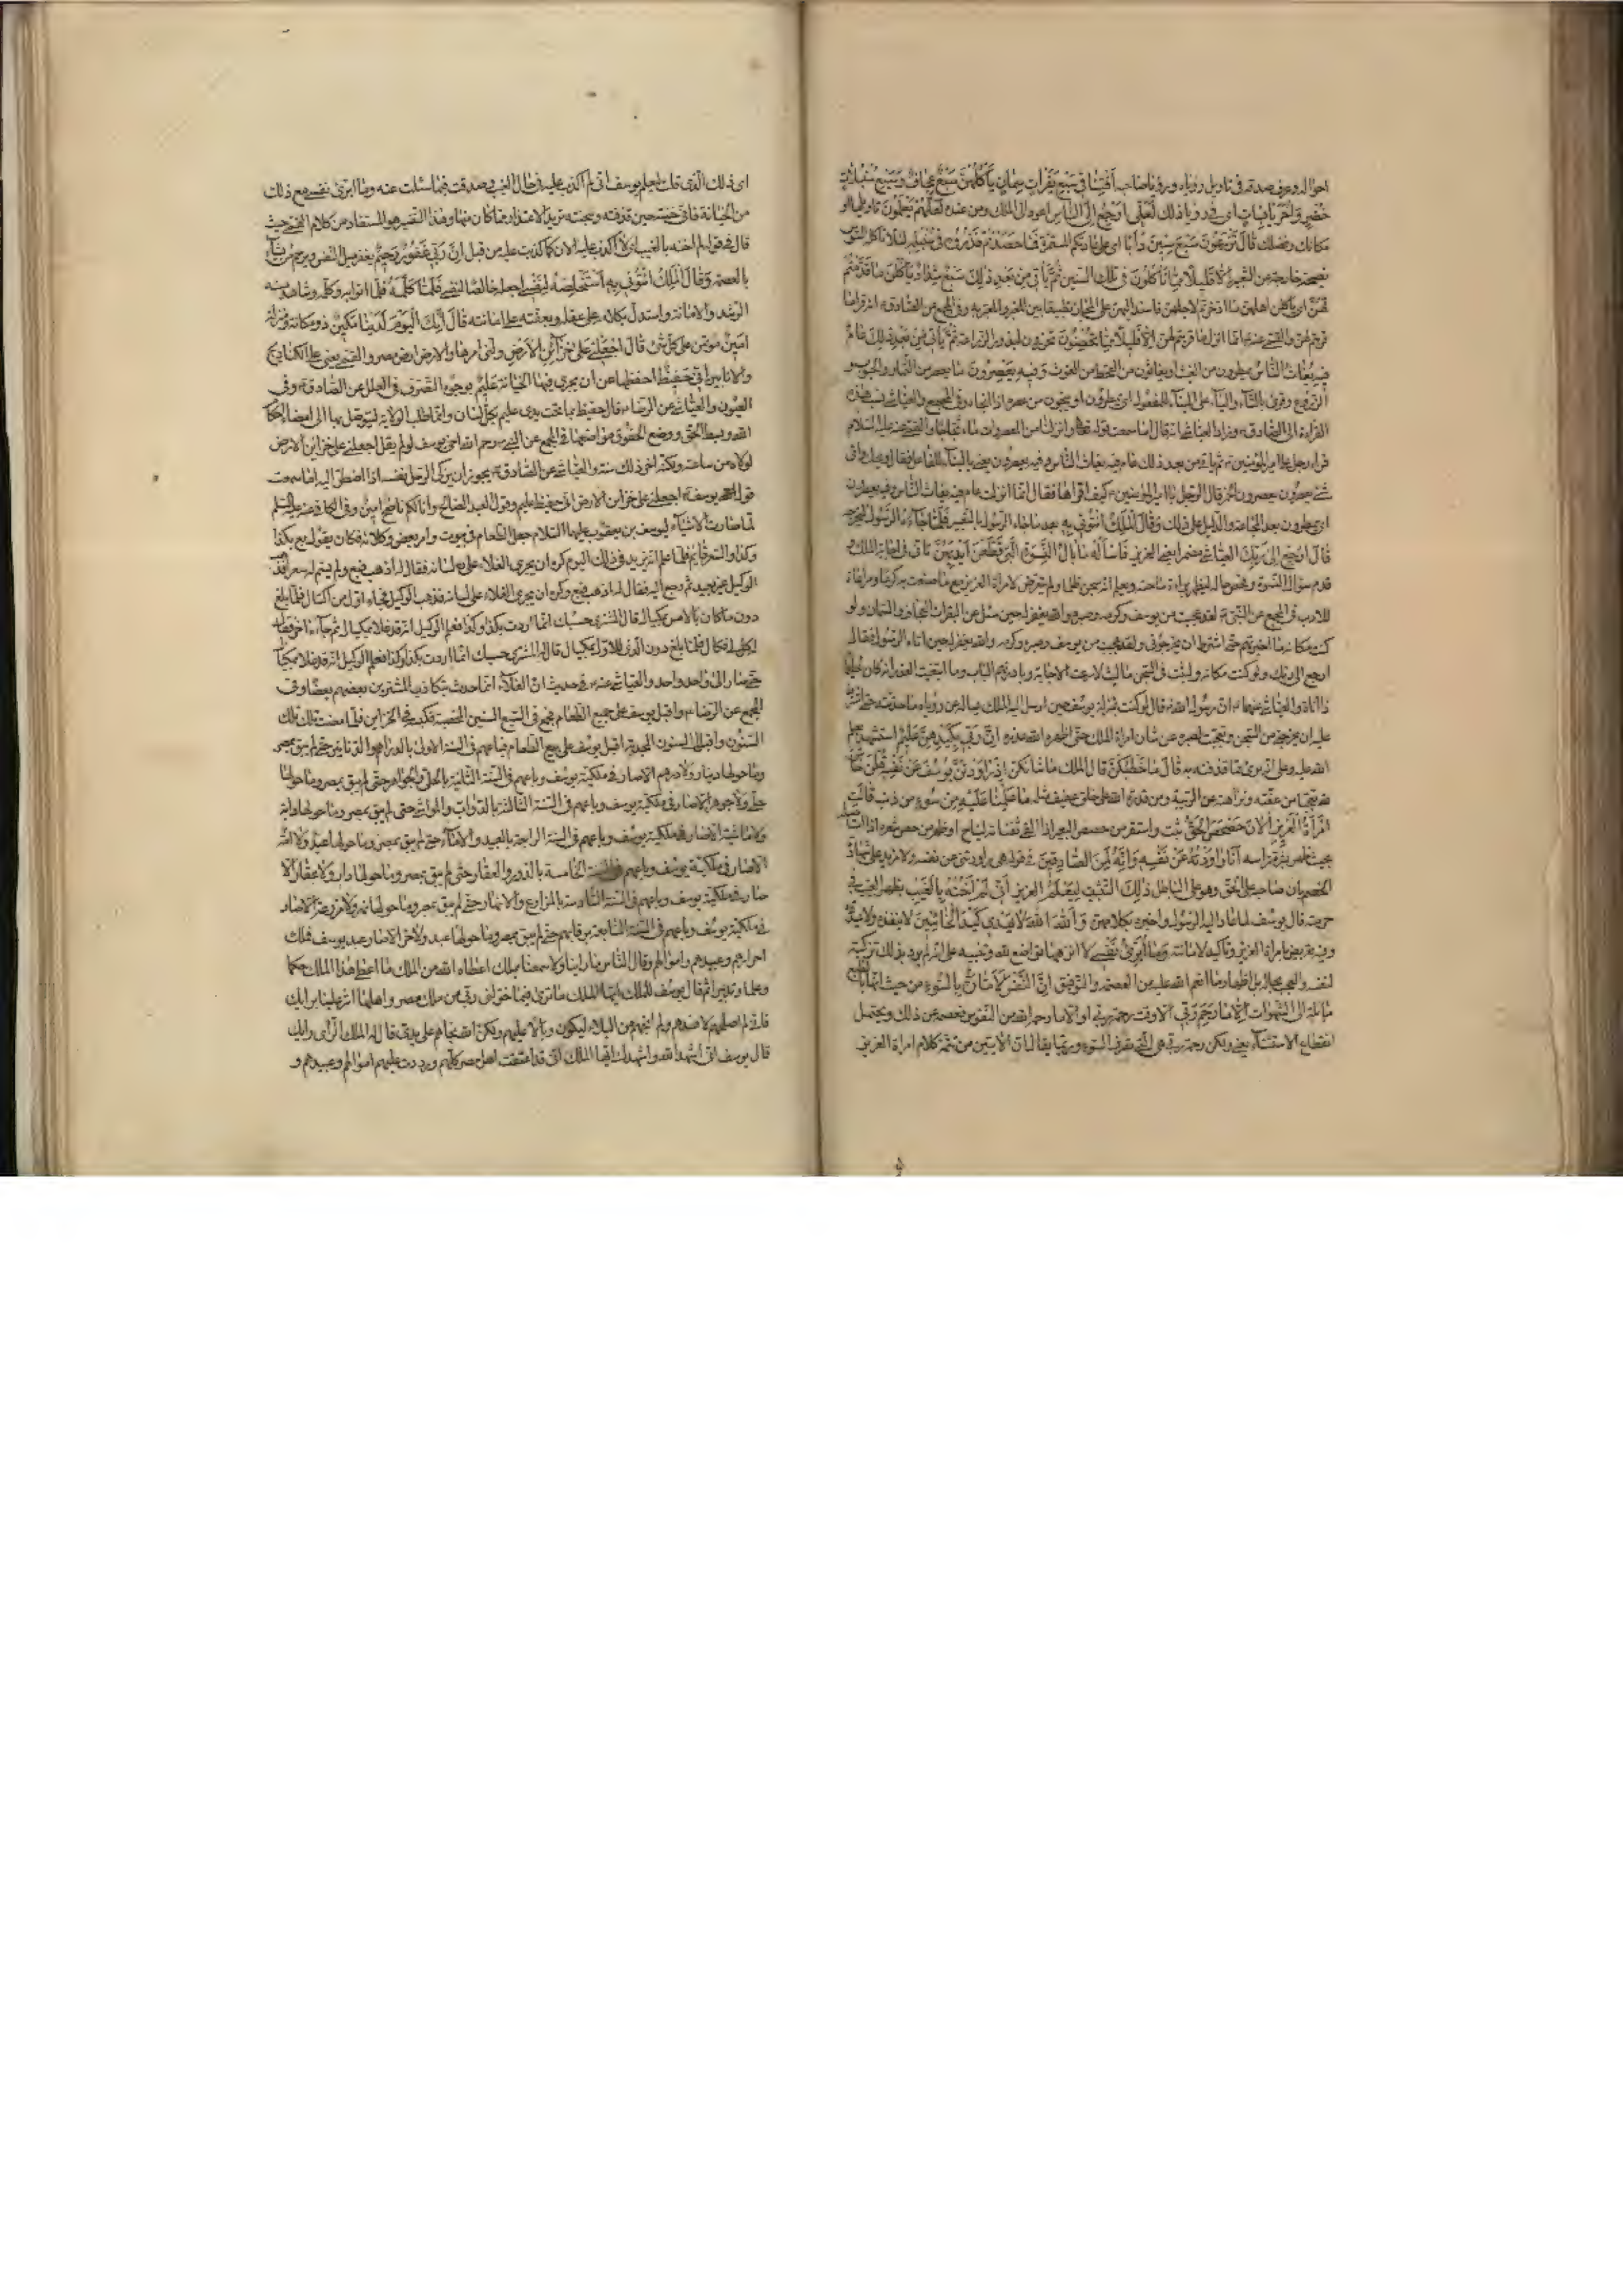 احواله وعرف صدقه فى تاويل رؤياه ورؤيا صاحبه أَفْتِنَا فِي سَبْعِ بَقَرَاتٍ سِمَانٍ يَأْكُلُهُنَّ سَبْعٌ عِجَافٌ وَسَبْعِ سُنْبُلَاتٍ
خُضْرٍ وَأُخَرَ يَابِسَاتٍ اى فى رؤيا ذلك لَعَلِّي أَرْجِعُ إِلَى النَّاسِ اعود الى الملك ومن عنده لَعَلَّهُمْ يَعْلَمُونَ تاويلها او
مكانك وفضلك قَالَ تَزْرَعُونَ سَبْعَ سِنِينَ دَأَبًا اى على عادتكم المستمرة فَمَا حَصَدْتُمْ فَذَرُوهُ فِي سُنْبُلِهِ لئلا ياكله السوس
نصيحة خارجة عن التعبير إِلَّا قَلِيلًا مِمَّا تَأْكُلُونَ فى تلك السنين ثُمَّ يَأْتِي مِنْ بَعْدِ ذَلِكَ سَبْعٌ شِدَادٌ يَأْكُلْنَ مَا قَدَّمْتُمْ
لَهُنَّ اى ياكلن اهلهن ما ادخرتم لاجلهن فاسند اليهن على المجاز تطبيقا بين المعبر والمعبر به وفى المجمع عن الصادق ع انه قرا ما
قربتم لهن والقمى عنه ع انما انزل ما قربتم لهن إِلَّا قَلِيلًا مِمَّا تُحْصِنُونَ تحرزون لبذور الزراعة ثُمَّ يَأْتِي مِنْ بَعْدِ ذَلِكَ عَامٌ
فِيهِ يُغَاثُ النَّاسُ يمطرون من الغيث او يغاثون من القحط من الغوث وَفِيهِ يَعْصِرُونَ ما يعصر من الثمار والحبوب و
الزروع وقرئ بالتاء والياء على البناء للمفعول اى يمطرون او ينجون من عصره اذا انجاه وفى المجمع والعياشى نسب هذه
القراءة الى الصادق ع وزاد العياشى انه قال اما سمعت قوله تعالى وانزلنا من المعصرات ماء ثجاجا والقمى عنه عليه السلام
قرا رجل على امير المؤمنين ع ثم ياتى من بعد ذلك عام فيه يغاث الناس وفيه يعصرون يعنى بالبناء للفاعل فقال ويحك واى
شئ يعصرون يعصرون الخمر قال الرجل يا امير المؤمنين ع كيف اقراها فقال انما انزلت عام فيه يغاث الناس وفيه يعصرون
اى يمطرون بعد المجاعة والدليل على ذلك وَقَالَ الْمَلِكُ ائْتُونِي بِهِ بعد ما جاءه الرسول بالتعبير فَلَمَّا جَاءَهُ الرَّسُولُ ليخرجه
قَالَ ارْجِعْ إِلَى رَبِّكَ العياشى مضمرا يعنى العزيز فَاسْأَلْهُ مَا بَالُ النِّسْوَةِ اللَّاتِي قَطَّعْنَ أَيْدِيَهُنَّ تانى فى اجابة الملك و
قدم سؤال النسوة وفحص حاله ليظهر براءة ساحته ويعلم انه سجن ظلما ولم يتعرض لامراة العزيز مع ما صنعت به كرما ومراعاة
للادب فى المجمع عن النبى ص لقد عجبت من يوسف وكرمه وصبره والله يغفر له حين سئل عن البقرات العجاف والسمان ولو
كنت مكانه ما اخبرتهم حتى اشترط ان يخرجونى ولقد عجبت من يوسف وصبره وكرمه والله يغفر له حين اتاه الرسول فقال له
ارجع الى ربك ولو كنت مكانه ولبثت فى السجن ما لبث لاسرعت الاجابة وبادرتهم الباب وما ابتغيت العذر انه كان حليما
ذا اناة والعياشى عنهما ع ان رسول الله ص قال لو كنت بمنزلة يوسف حين ارسل اليه الملك يساله عن رؤياه ما حدثته حتى اشترط
عليه ان يخرجنى من السجن وتعجبت لصبره عن شان امراة الملك حتى اظهر الله عذره إِنَّ رَبِّي بِكَيْدِهِنَّ عَلِيمٌ استشهد بعلم
الله عليه وعلى انه برئ مما قذف به قَالَ مَا خَطْبُكُنَّ قال الملك ما شانكن إِذْ رَاوَدْتُنَّ يُوسُفَ عَنْ نَفْسِهِ قُلْنَ حَاشَ
لله تعجبا من عفته ونزاهته عن الريبة ومن قدرة الله على خلق عفيف مثله مَا عَلِمْنَا عَلَيْهِ مِنْ سُوءٍ من ذنب قَالَتِ
امْرَأَةُ الْعَزِيزِ الْآنَ حَصْحَصَ الْحَقُّ ثبت واستقر من حصحص البعير اذا القى ثفناته ليناخ او ظهر من حص شعره اذا استاصله
بحيث ظهر بشرة راسه أَنَا رَاوَدْتُهُ عَنْ نَفْسِهِ وَإِنَّهُ لَمِنَ الصَّادِقِينَ فى قوله هى راودتنى عن نفسى ولا مزيد على شهادة
الخصم بان صاحبه على الحق وهو على الباطل ذَلِكَ التثبت لِيَعْلَمَ العزيز أَنِّي لَمْ أَخُنْهُ بِالْغَيْبِ بظهر الغيب فى
حرمته قال يوسف لما عاد اليه الرسول واخبره بكلامهن وَأَنَّ اللَّهَ لَا يَهْدِي كَيْدَ الْخَائِنِينَ لا ينفذه ولا يسدده
وفيه تعريض بامراة العزيز وتاكيد لامانته وَمَا أُبَرِّئُ نَفْسِي لا انزهها تواضع لله وتنبيه على انه لم يرد بذلك تزكية
لنفسه والعجب بحاله بل اظهار ما انعم الله عليه من العصمة والتوفيق إِنَّ النَّفْسَ لَأَمَّارَةٌ بِالسُّوءِ من حيث انها بالطبع
مائلة الى الشهوات إِلَّا مَا رَحِمَ رَبِّي الا وقت رحمة ربى او الا ما رحمه الله من النفوس فعصمه عن ذلك ويحتمل
انقطاع الاستثناء يعنى ولكن رحمة ربى هى التى تصرف السوء وربما يقال ان الايتين من تتمة كلام امراة العزيز
اى ذلك الذى قلت ليعلم يوسف انى لم اكذب عليه فى حال الغيب وصدقت فيما سئلت عنه وما ابرئ نفسى مع ذلك
من الخيانة فانى خنته حين قذفته وسجنته تريد الاعتذار مما كان منها وهذا التفسير هو المستفاد من كلام القمى حيث
قال فى قوله لم اخنه بالغيب اى لا اكذب عليه الان كما كذبت عليه من قبل إِنَّ رَبِّي غَفُورٌ رَحِيمٌ يغفر ميل النفس ويرحم من يشاء
بالعصمة وَقَالَ الْمَلِكُ ائْتُونِي بِهِ أَسْتَخْلِصْهُ لِنَفْسِي اجعله خالصا لنفسى فَلَمَّا كَلَّمَهُ فلما اتوا به وكلمه وشاهد منه
الرشد والامانة واستدل بكلامه على عقله وبعفته على امانته قَالَ إِنَّكَ الْيَوْمَ لَدَيْنَا مَكِينٌ ذو مكانة ومنزلة
أَمِينٌ مؤتمن على كل شئ قَالَ اجْعَلْنِي عَلَى خَزَائِنِ الْأَرْضِ ولنى امرها والارض ارض مصر والقمى يعنى على الكناديج
والانابير إِنِّي حَفِيظٌ احفظها عن ان يجرى فيها الخيانة عَلِيمٌ بوجوه التصرف فى العلل عن الصادق ع وفى
العيون والعياشى عن الرضا ع قال حفيظ بما تحت يدى عليم بكل لسان وانما طلب الولاية ليتوصل بها الى امضاء احكام
الله وبسط الحق ووضع الحقوق مواضعها فى المجمع عن النبى ص رحم الله اخى يوسف لو لم يقل اجعلنى على خزاين الارض
لولاه من ساعته ولكنه اخر ذلك سنة والعياشى عن الصادق ع يجوز ان يزكى الرجل نفسه اذا اضطر اليه اما سمعت
قول يوسف ع اجعلنى على خزاين الارض انى حفيظ عليم وقول العبد الصالح وانا لكم ناصح امين وفى الكافى عنه عليه السلم
لما صارت الاشياء ليوسف بن يعقوب عليهما السلام جعل الطعام فى بيوت وامر بعض وكلائه فكان يقول بع بكذا
وكذا والسعر قايم فلما علم انه يزيد فى ذلك اليوم كره ان يجرى الغلاء على لسانه فقال له اذهب فبع ولم يسم له سعرا فذهب
الوكيل غير بعيد ثم رجع اليه فقال له اذهب فبع وكره ان يجرى الغلاء على لسانه فذهب الوكيل فجاء اول من اكتال فلما بلغ
دون ما كان بالامس بمكيال قال المشترى حسبك انما اردت بكذا وكذا فعلم الوكيل انه قد غلا بمكيال ثم جاءه اخر فقال له
كل لى فكال فلما بلغ دون الذى للاول بمكيال قال له المشترى حسبك انما اردت بكذا وكذا فعلم الوكيل انه قد غلا بمكيال
حتى صار الى واحد واحد والعياشى عنه ع فى حديث ان الغلاء انما حدث بتكاذب المشترين بعضهم بعضا وفى
المجمع عن الرضا ع واقبل يوسف على جميع الطعام فجمع فى السبع السنين المخصبة فكبسه فى الخزاين فلما مضت تلك
السنون واقبل السنون المجدبة اقبل يوسف على بيع الطعام فباعهم فى السنة الاولى بالدراهم والدنانير حتى لم يبق بمصر
وما حولها دينار ولا درهم الا صار فى ملكية يوسف وباعهم فى السنة الثانية بالحلى والجواهر حتى لم يبق بمصر وما حولها
حلى ولا جوهر الا صار فى ملكية يوسف وباعهم فى السنة الثالثة بالدواب والمواشى حتى لم يبق بمصر وما حولها دابة
ولا ماشية الا صار فى ملكية يوسف وباعهم فى السنة الرابعة بالعبيد والاماء حتى لم يبق بمصر وما حولها عبد ولا امة
الا صار فى ملكية يوسف وباعهم فى السنة الخامسة بالدور والعقار حتى لم يبق بمصر وما حولها دار ولا عقار الا
صار فى ملكية يوسف وباعهم فى السنة السادسة بالمزارع والانهار حتى لم يبق بمصر وما حولها نهر ولا مزرعة الا صار
فى ملكية يوسف وباعهم فى السنة السابعة برقابهم حتى لم يبق بمصر وما حولها عبد ولا حر الا صار عبد يوسف فملك
احرارهم وعبيدهم واموالهم وقال الناس ما راينا ولا سمعنا بملك اعطاه الله من الملك ما اعطى هذا الملك حكما
وعلما وتدبيرا ثم قال يوسف للملك ايها الملك ما ترى فيما خولنى ربى من ملك مصر واهلها اشر علينا برايك
فانى لم اصلحهم لافسدهم ولم انجهم من البلاء ليكون وبالا عليهم ولكن الله نجاهم على يدى قال له الملك الراى رايك
قال يوسف انى اشهد الله واشهدك ايها الملك انى قد اعتقت اهل مصر كلهم ورددت عليهم اموالهم وعبيدهم و